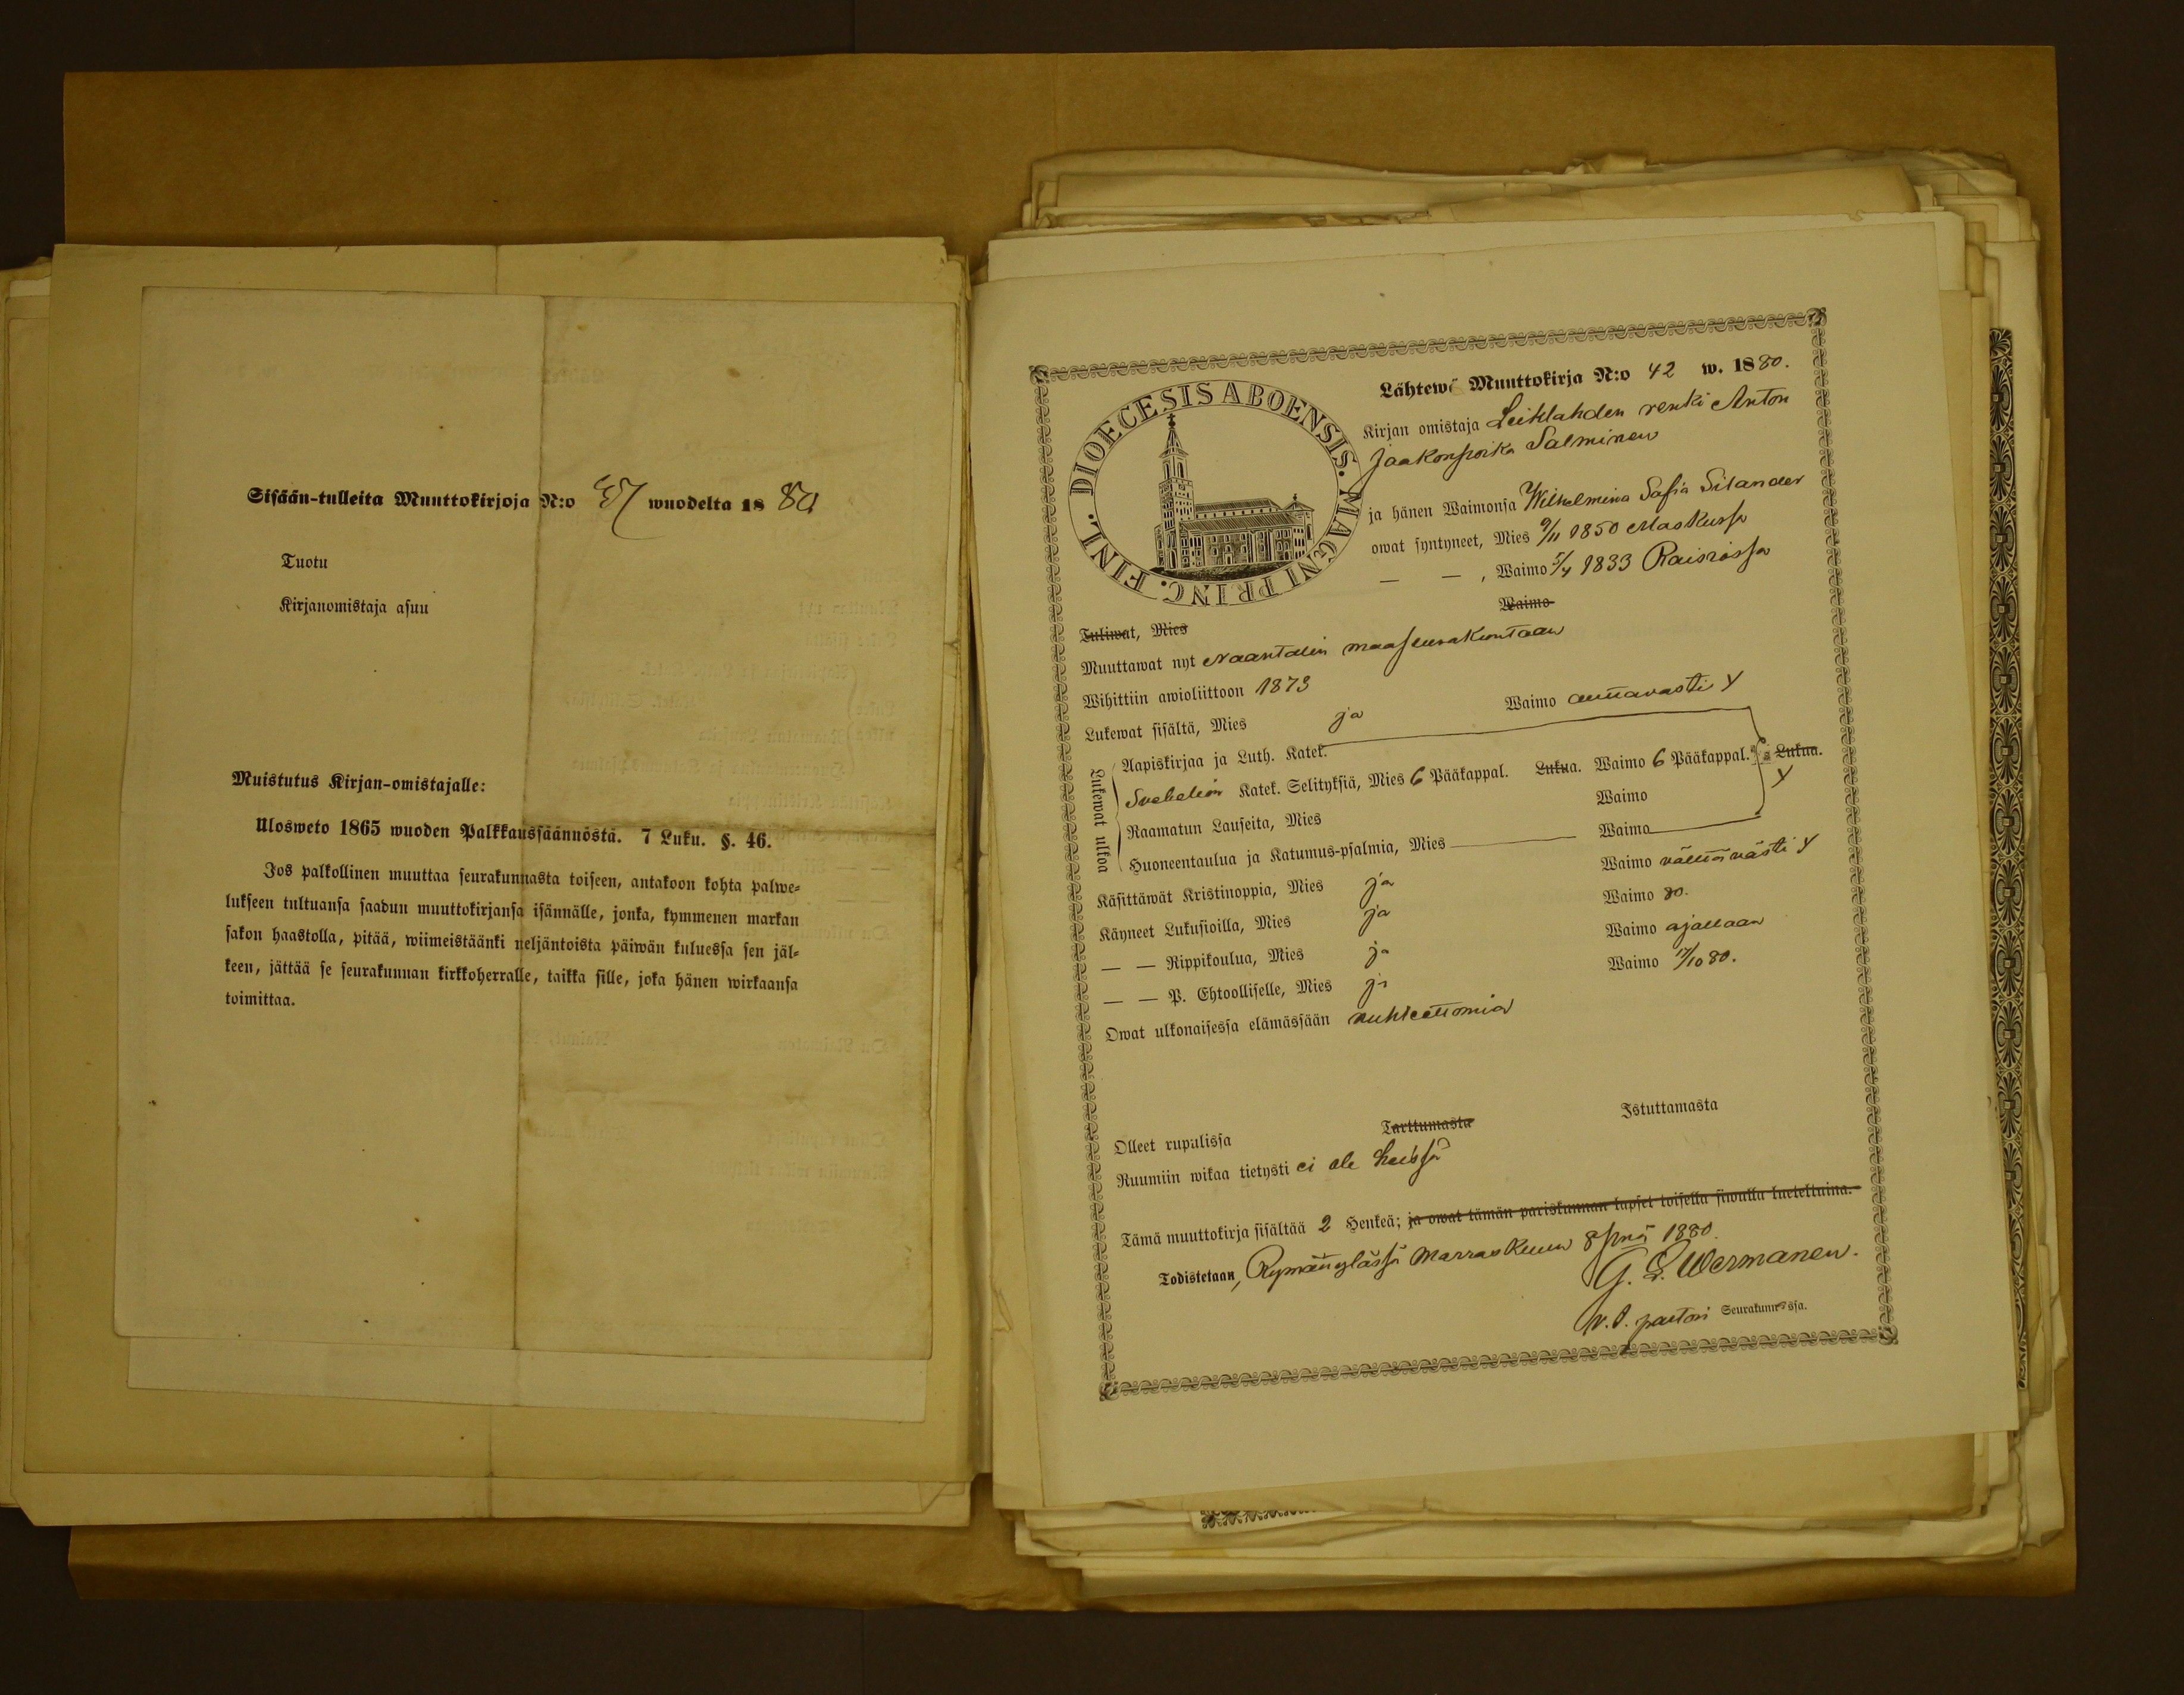 Sisään-tulleita Muuttokirjoja N:o wuodelta 1880
Tuotu
Kirjanomistaja asuu
Muistutus Kirjan-omistajalle:
Ulosweto 1865 wuoden Palkkaussäännöstä. 7 Luku. §. 46.
Jos palkollinen muuttaa seurakunnasta toiseen, antakoon kohta palwe-
lukseen tultuansa saadun muuttokirjansa isännälle, jonka, kymmenen markan
sakon haastolla, pitää, wiimeistäänki neljäntoista päiwän kuluessa sen jäl-
keen, jättää se seurakunnan kirkkoherralle, taikka sille, joka hänen wirkaansa
toimittaa.
DIOECESIS ABOENSIS. MAGNI PRINC. FINL.
Lähtewä Muuttokirja N:o 42 w. 1880.
Kirjan omistaja Leiklahden renki Anton
Jaakonpoika Salminen
ja hänen Waimonsa Wilhelmina Safia Silander
owat syntyneet, Mies 9/11 1850 Maskussa
— — , Waimo 5/4 1833 Raisiossa
Tuliwat, Mies Waimo
Muuttawat nyt Naantalin maaseurakuntaan
Wihittiin awioliittoon 1873
Lukewat sisältä, Mies ja Waimo auttavasti
Lukewat ulkoa
Aapiskirjaa ja Luth. Katek.
Svebelion Katek. Selityksiä, Mies 6 Pääkappal. Lukua. Waimo 6 Pääkappal. Lukua.
Raamatun Lauseita, Mies Waimo
Huoneentaulua ja Katumus-psalmia, Mies Waimo
Käsittäwät Kristinoppia, Mies ja Waimo välttävästi
Käyneet Lukusioilla, Mies ja Waimo 80.
— — Rippikoulua, Mies ja Waimo ajallaan
— — P. Ehtoolliselle, Mies ja Waimo 17/10 80.
Owat ulkonaisessa elämässään nuhteettomia
Olleet rupulissa Tarttumasta Istuttamasta
Ruumiin wikaa tietysti ei ole heissä
Tämä muuttokirja sisältää 2 Henkeä; ja owat tämän pariskunnan lapset toisella siwulla lueteltuina.
Todistetaan, Rymättylässä Marraskuun 8 pnä 1880.
G. E. Wermanen.
v. t. pastori Seurakunnassa.